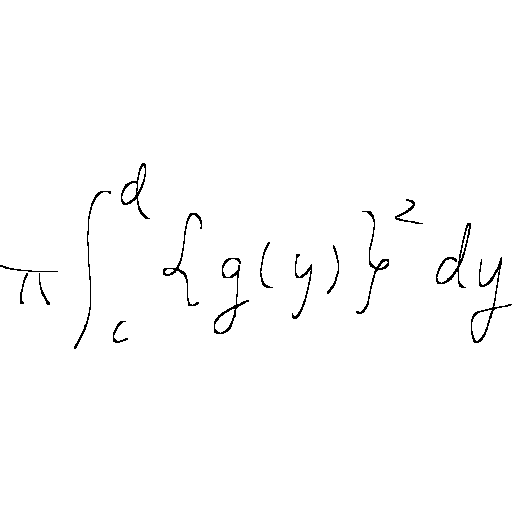 \pi \int_{c}^{d} \{ g(y) \}^{2} dy